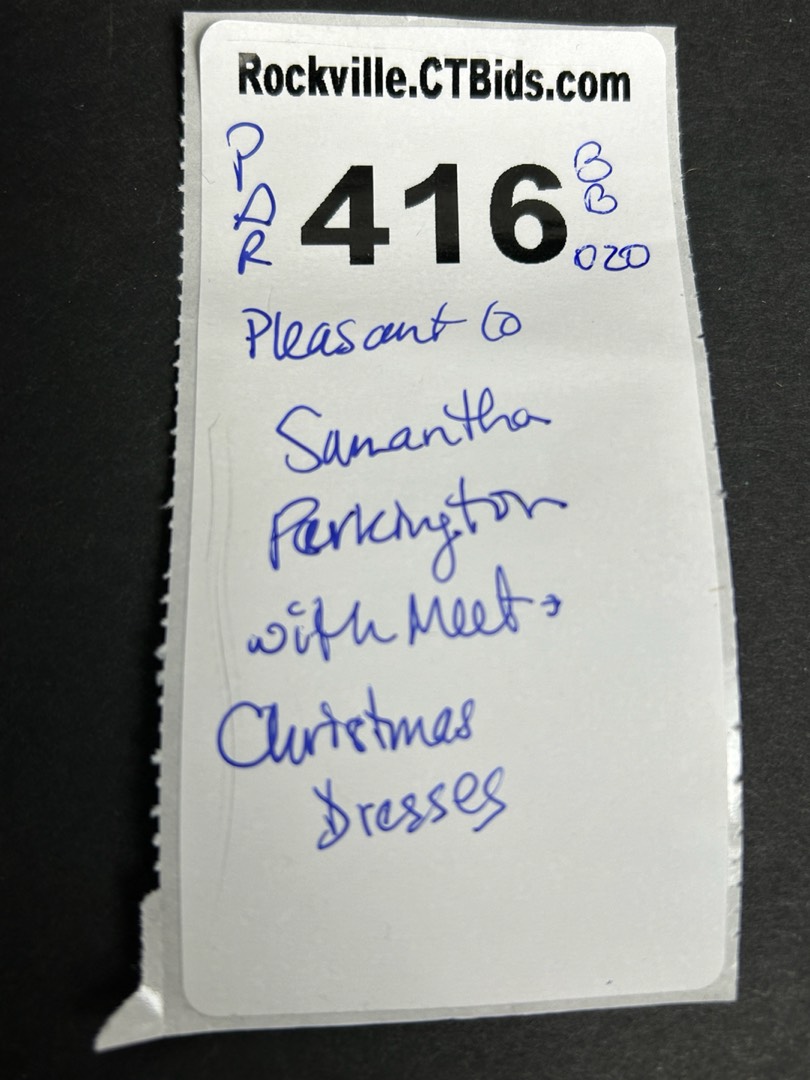 Rockville.CTBids.com
PDR
416
BB
020
Pleasant Co
Samantha
Parkington
with Meet →
Christmas
Dresses